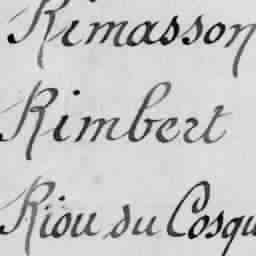 Rimasson
Rimbert
Riou du Cosqu